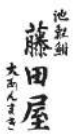 池鯉鮒
藤田屋
大あんまき